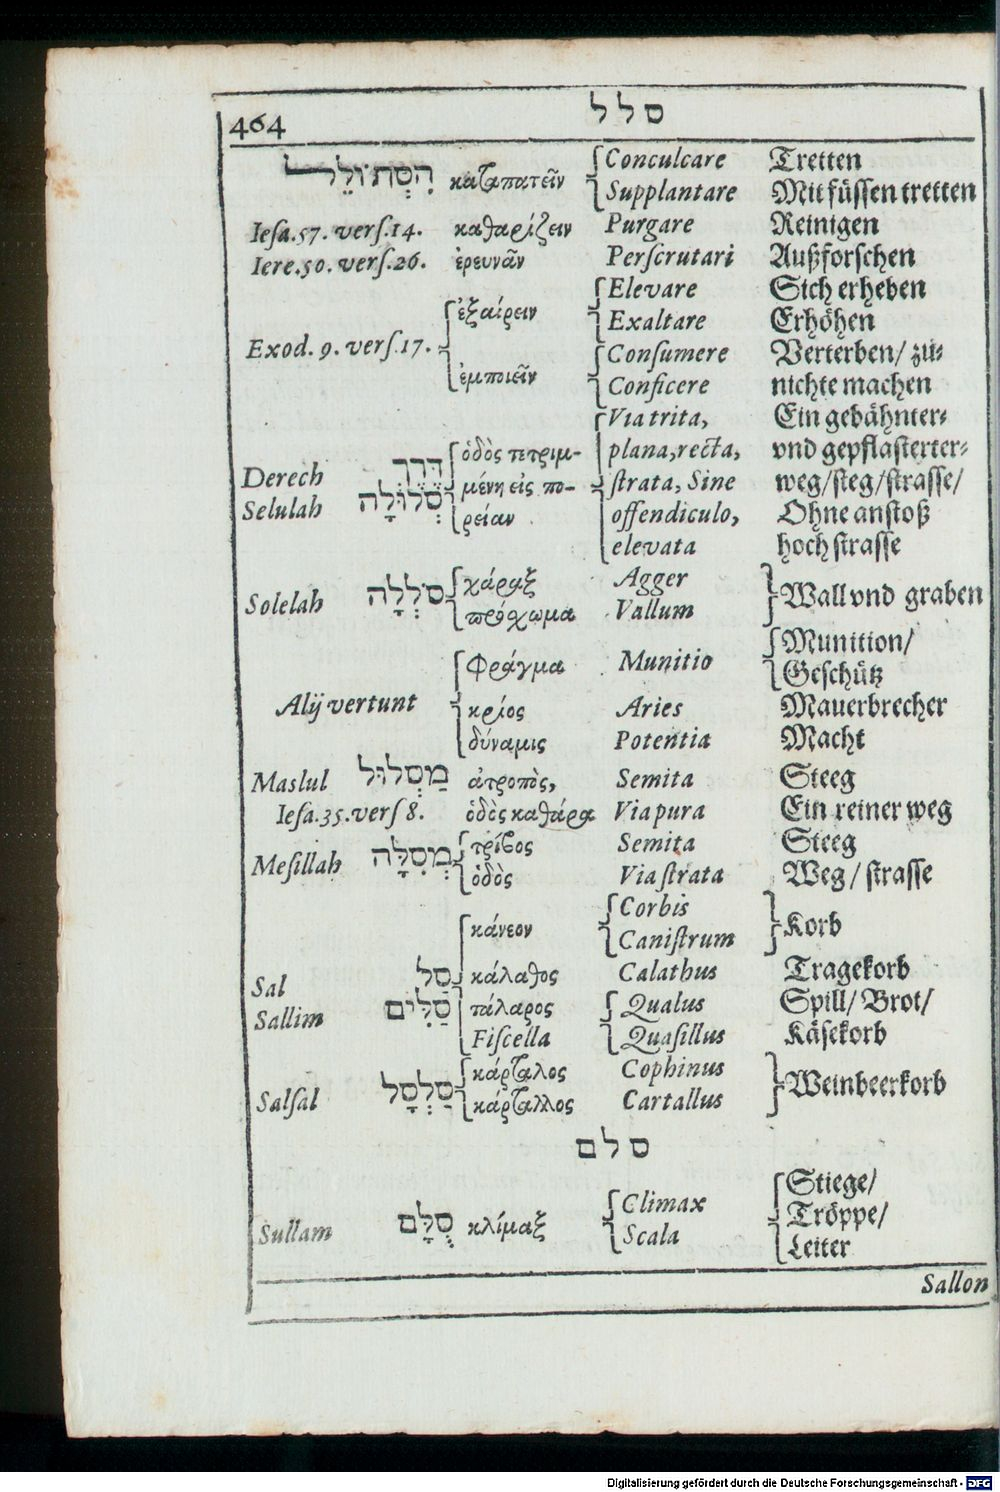 464 סלל
הִסְתּוֹלֵל καταπατεῖν Conculcare Tretten
Supplantare Mit füssen tretten
Iesa.57. verſ.14. καθαρίζειν Purgare Reinigen
Iere.50. verſ.26. ἐρευνᾶν Perſcrutari Außforschen
ἐξαίρειν Elevare Sich erheben
Exaltare Erhöhen
Exod. 9. verſ.17. Conſumere Verterben/ zu-
ἐμποιεῖν Conficere nichte machen
Via trita, Ein gebähnter-
Derech דֶּרֶךְ ὁδὸς πετριμ- plana, recta, vnd gepflasterter-
μένη εἰς πο- ſtrata, Sine weg/steg/strasse/
Selulah סְלוּלָה ρείαν offendiculo, Ohne anstoß
elevata hoch strasse
Solelah סֹלְלָה χάραξ Agger Wall vnd graben
πρόχωμα Vallum
Φράγμα Munitio Munition/
Geschütz
Alij vertunt κριος Aries Mauerbrecher
δύναμις Potentia Macht
Maslul מַסְלוּל ἀτροπὸς, Semita Steeg
Ieſa.35.verſ 8. ὁδὸς καθάρα Via pura Ein reiner weg
Meſillah מְסִלָּה τρίβος Semita Steeg
ὁδὸς Via ſtrata Weg/ strasse
κάνεον Corbis Korb
Caniſtrum
Sal סַל κάλαθος Calathus Tragekorb
Sallim סַלִּים πάλαρος Qualus Spill/ Brot/
Fiſcella Quaſillus Käsekorb
Salſal סַלְסָל κάρταλος Cophinus Weinbeerkorb
κάρταλλος Cartallus
סלם
Stiege/
Sullam סֻלָּם κλίμαξ Climax Tröppe/
Scala Leiter
Sallon
Digitalisierung gefördert durch die Deutsche Forschungsgemeinschaft - DFG